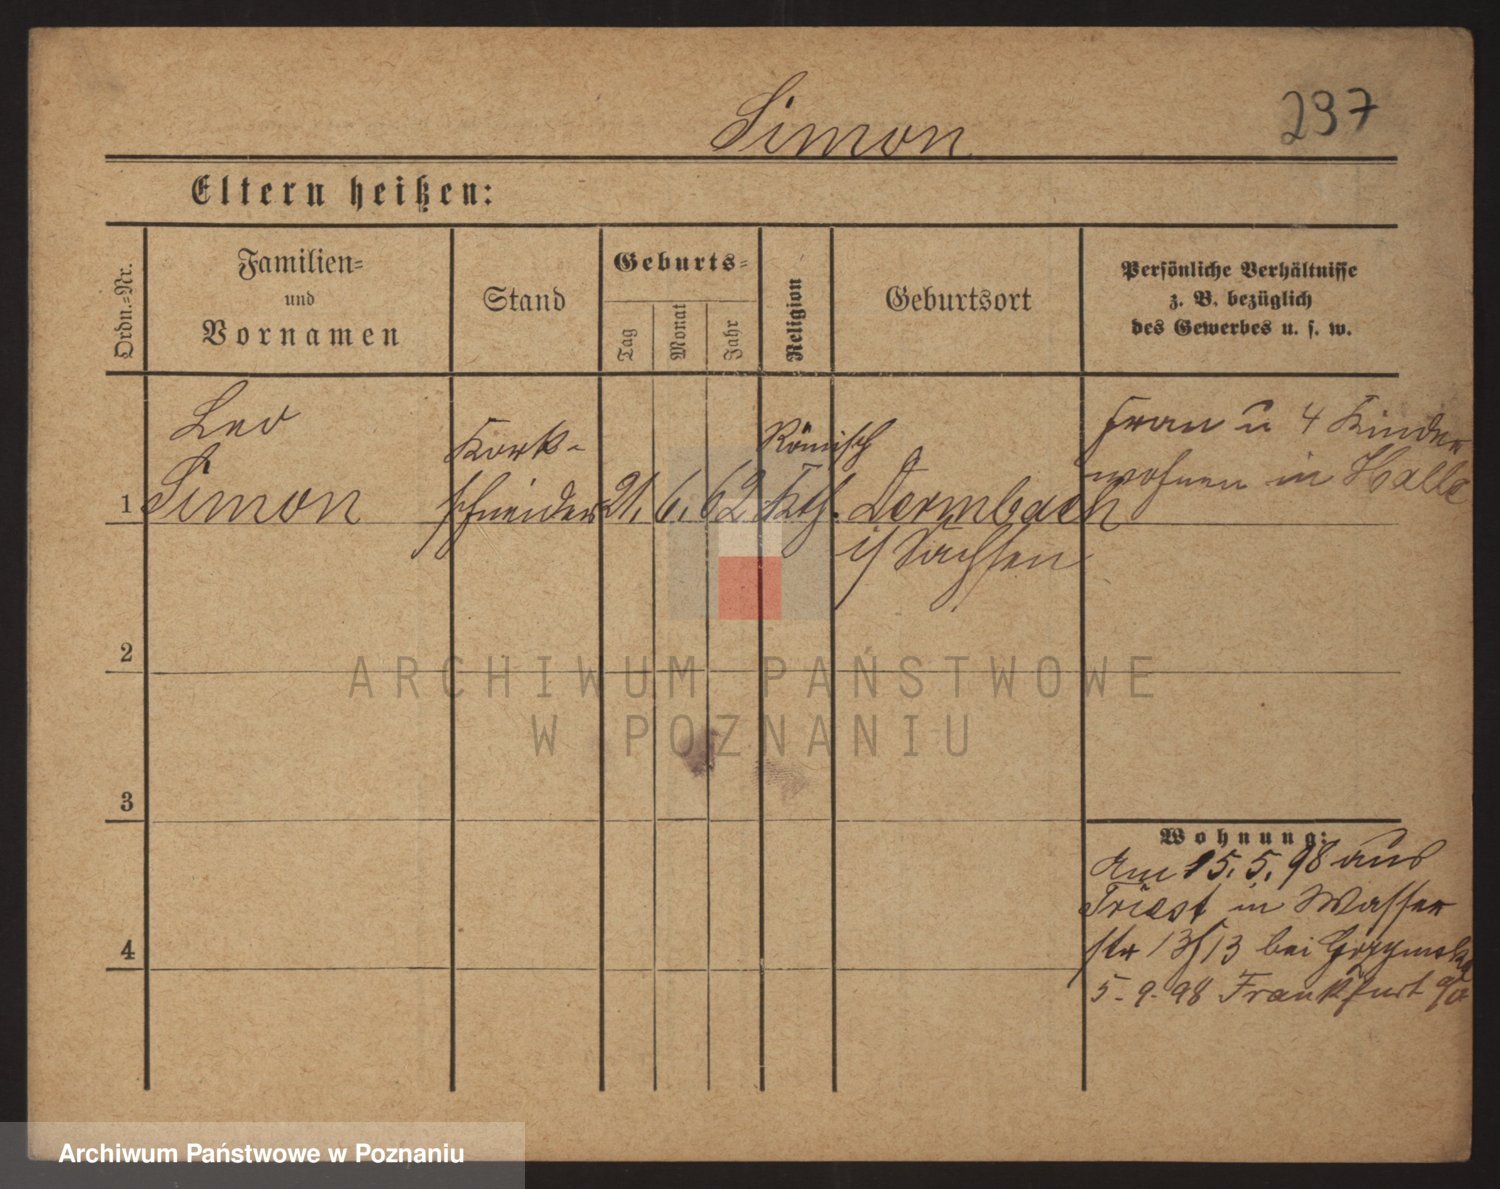 Simon
237
Eltern heißen:
Ordn.-Nr.
Familien-
und
Vornamen
Stand
Geburts-
Tag
Monat
Jahr
Religion
Geburtsort
Persönliche Verhältnisse
z. B. bezüglich
des Gewerbes u. s. w.
1
Leo
Simon
Kork-
schneider
21. 6. 62
Römisch
Kth.
Dermbach
i/ Sachsen
Frau u 4 Kinder
wohnen in Halle
2
3
4
Wohnung:
Am 15. 5. 98 aus
Triest in Wasser
str 13/13 bei
5. 9. 98 Frankfurt a/O
ARCHIWUM PAŃSTWOWE
W POZNANIU
Archiwum Państwowe w Poznaniu